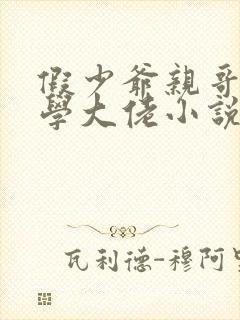 假少爺親哥
學大佬小說
瓦利德-穆阿